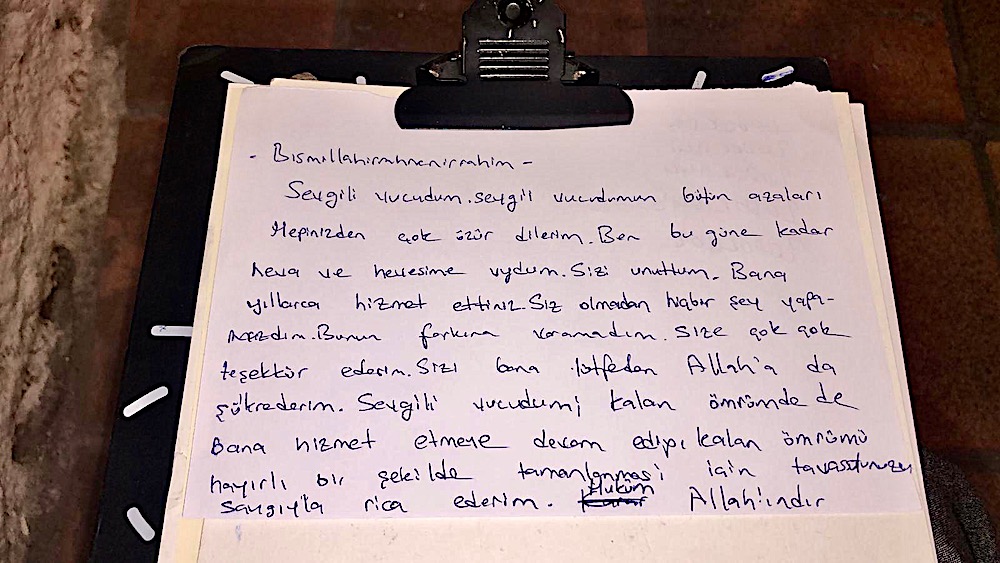 - Bismillahirrahmenirrahim -
Sevgili vucudum. sevgili vucudumun bütün azaları
Hepinizden çok özür dilerim. Ben bu güne kadar
heva ve hevesime uydum. Sizi unuttum. Bana
yıllarca hizmet ettiniz. Siz olmadan hiçbir şey yapa-
mazdım. Bunun farkına varamadım. Size çok çok
teşekkür ederim. Sizi bana lütfeden Allah'a da
şükrederim. Sevgili vucudum; kalan ömrümde de
Bana hizmet etmeye devam edip, kalan ömrümü
hayırlı bir şekilde tamamlanması için tavassutunuzu
saygıyla rica ederim. Hüküm Allah'ındır